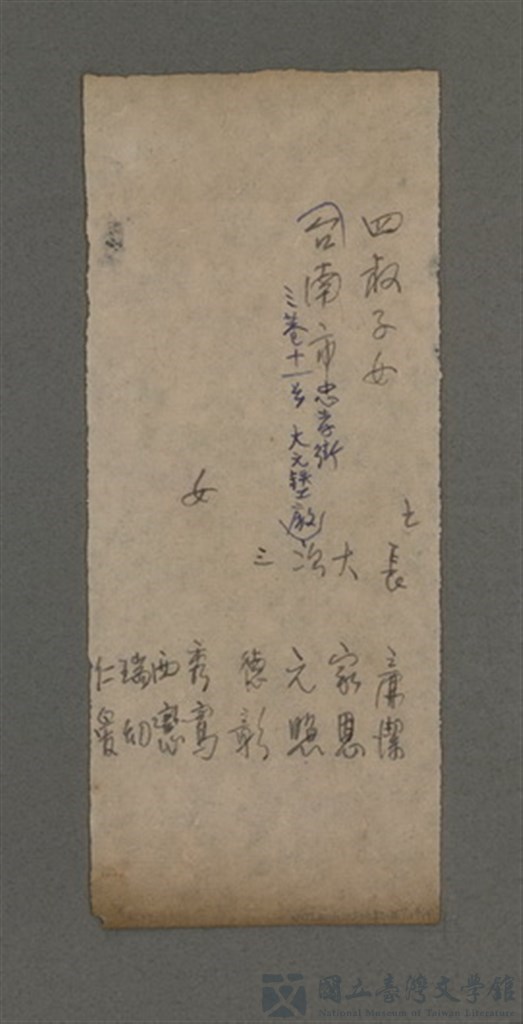 四叔子女
台南市忠孝街
三巷十一号 大元鉄工廠
長 廉潔
大 家恩
次 元照
三 德彰
女 秀鸞
西戀
瑞
仁
國立臺灣文學館
National Museum of Taiwan Literature